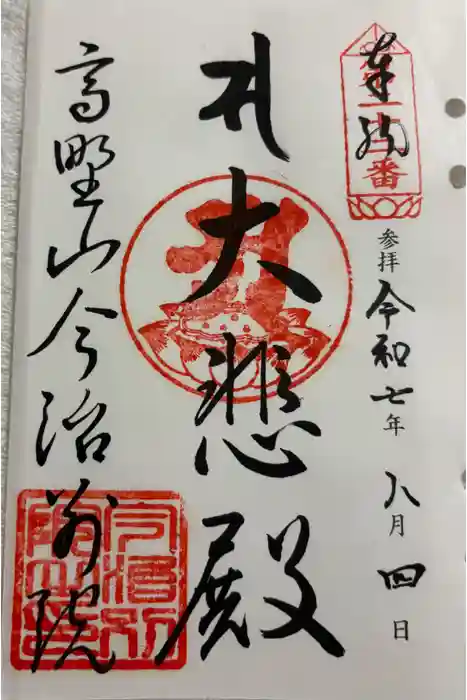 奉拝
番
参拝 令和七年 八月 四日
大悲殿
高野山今治別院